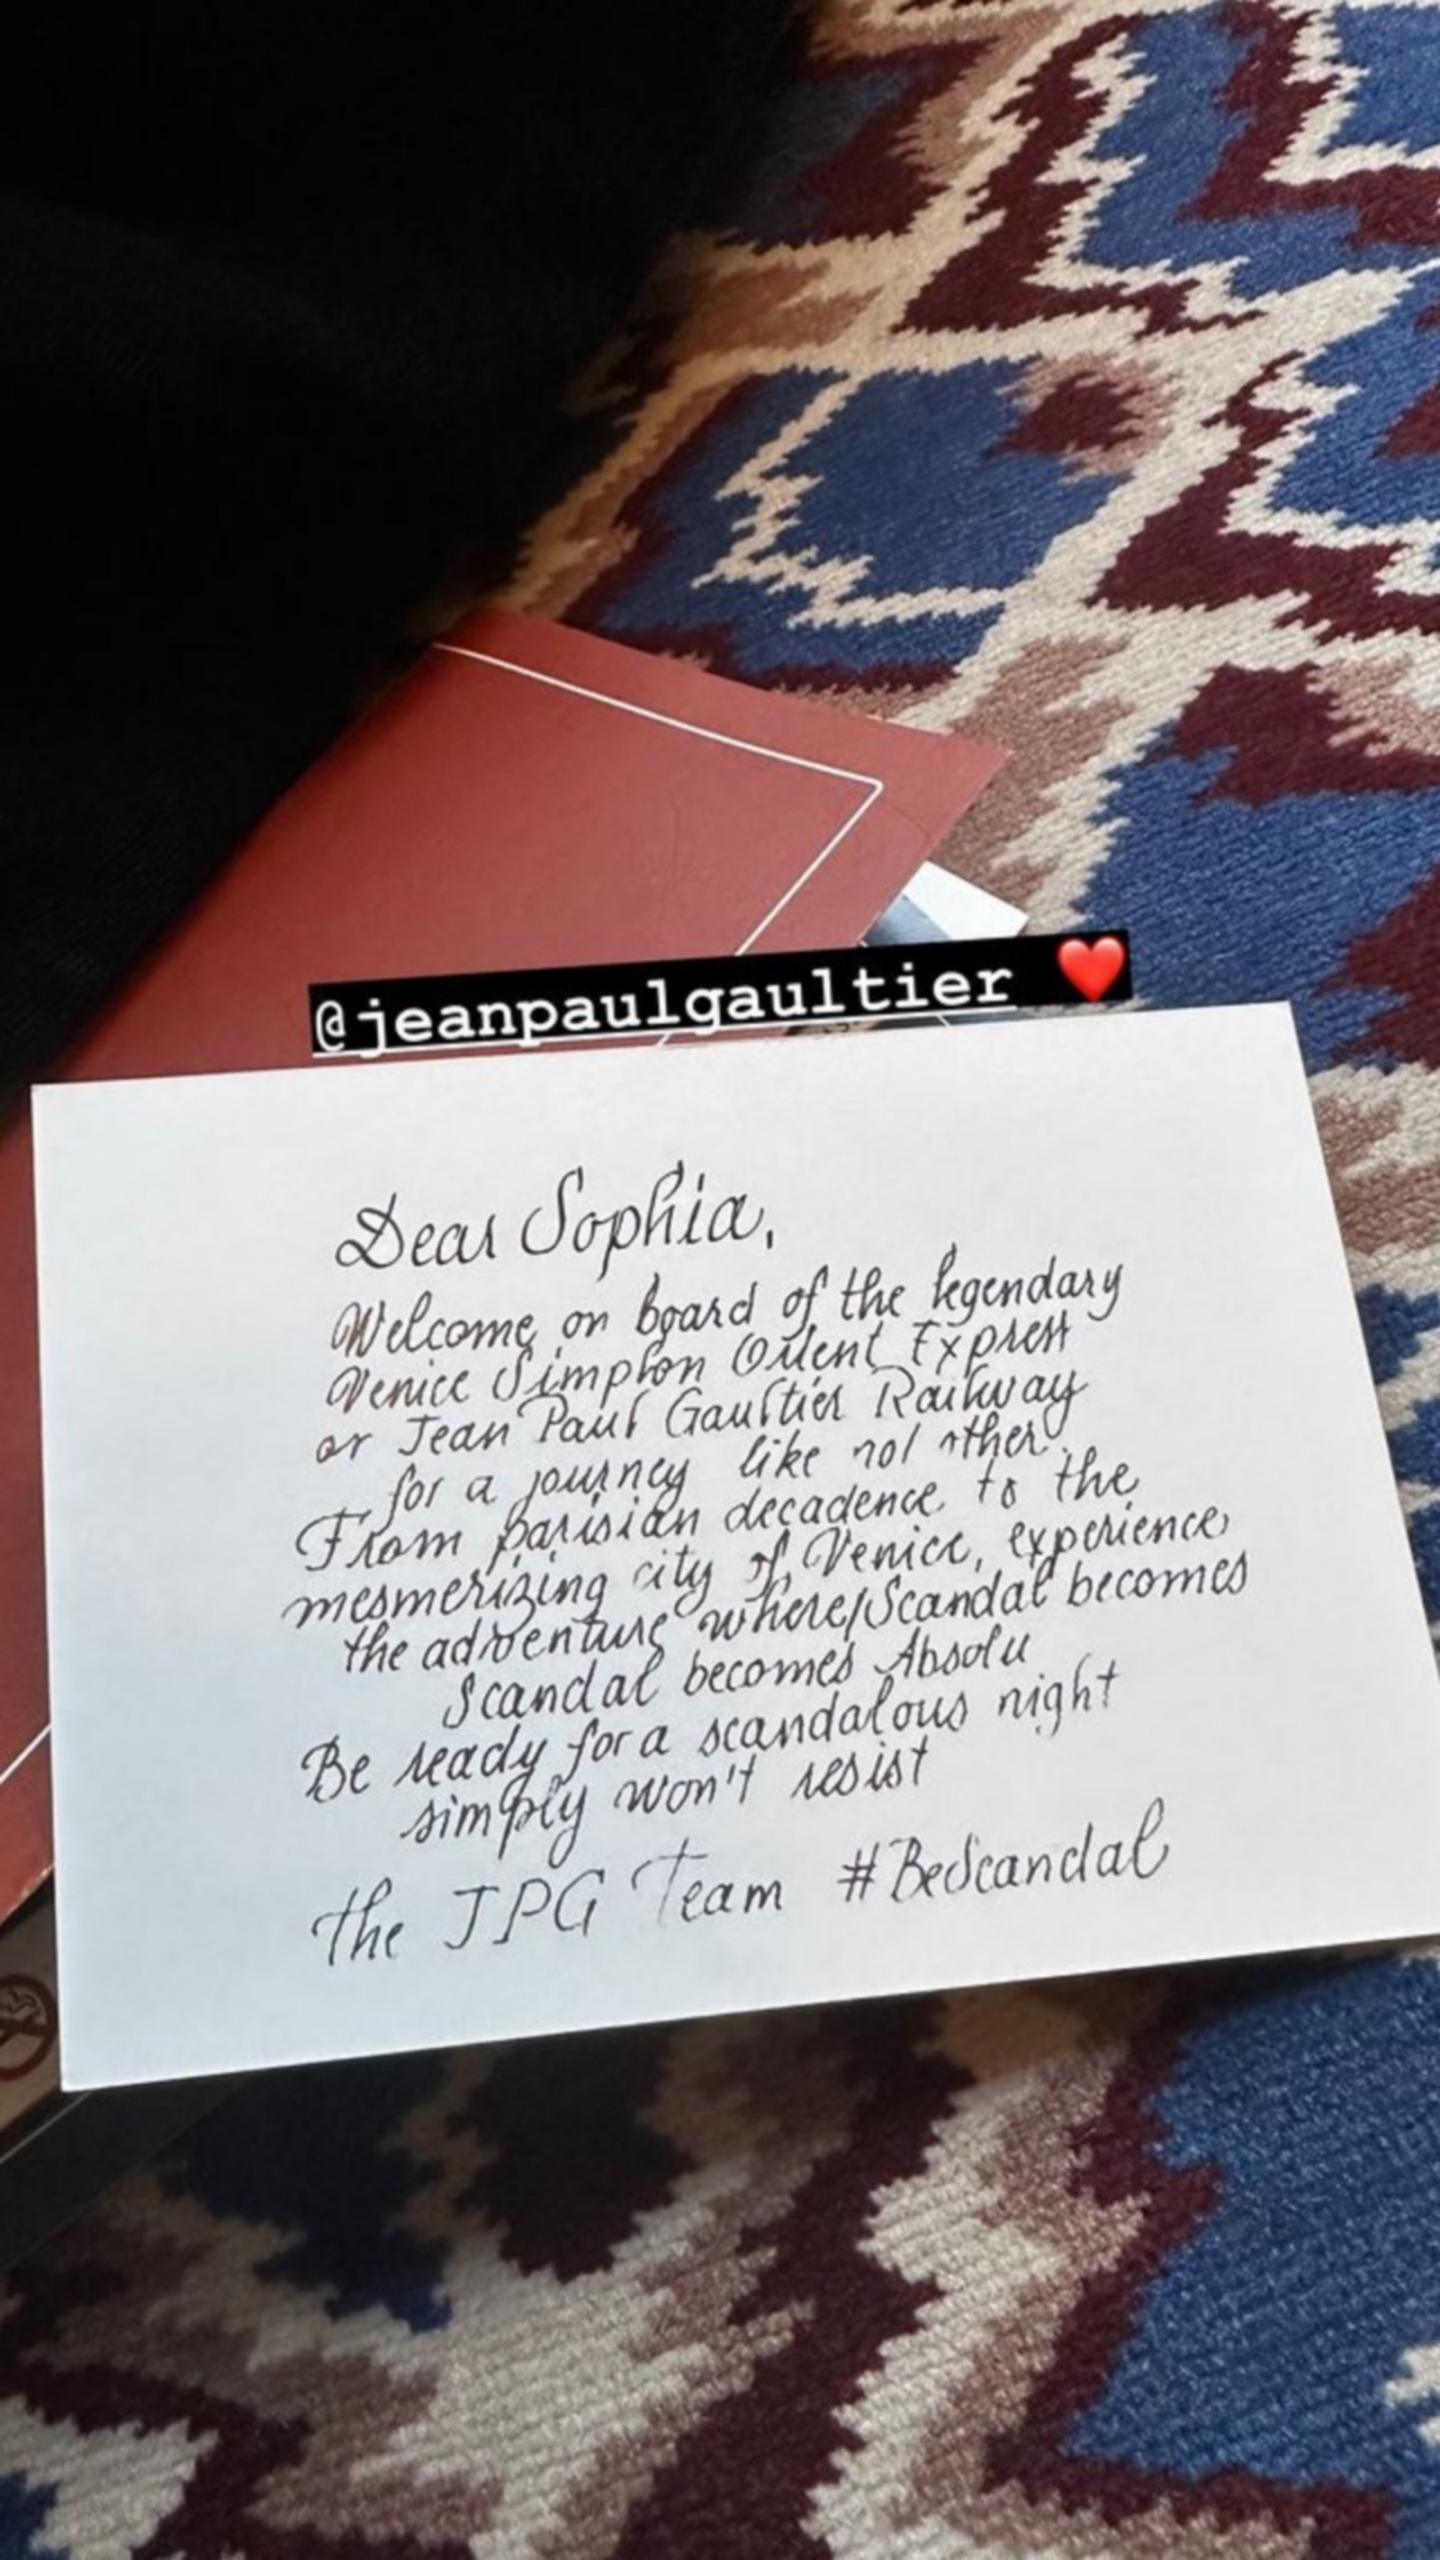 @jeanpaulgaultier ❤️
Dear Sophia,
Welcome on board of the legendary
Venice Simplon Orient Express
or Jean Paul Gaultier Railway
for a journey like not other.
From parisian decadence to the
mesmerizing city of Venice, experience
the adventure where/Scandal becomes
Scandal becomes Absolu
Be ready for a scandalous night
simply won't resist
the JPG Team #BeScandal